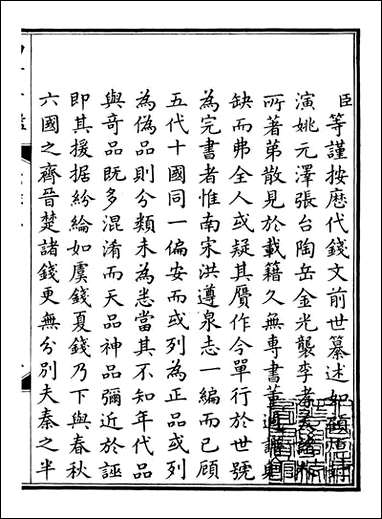 臣
等謹按歷代錢文前世纂述如顧
演姚元澤張台陶岳金光襲李孝
所著第散見於載籍久無專書董逌譜
缺而弗全人或疑其贋作今單行於世號
為完書者惟南宋洪遵泉志一編而已顧
五代十國同一偏安而或列為正品或列
為偽品則分類未為悉當其不知年代品
與奇品既多混淆而天品神品彌近於誣
即其援据紛綸如虞錢夏錢乃下與春秋
六國之齊晉楚諸錢更無分別夫秦之半